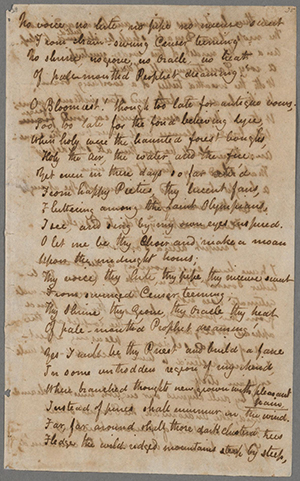 No voice no lute no pipe no incense sweet
From chain-swung Censer teeming
No shrine no grove no Oracle no heat
Of pale-mouthed Prophet dreaming
O Bloomiest! though too late for antique vows;
Too, too late for the fond believing Lyre,
When holy were the haunted forest boughs
Holy the Air, the water and the fire:
Yet even in these days so far retir'd
From happy Pieties, thy lucent fans,
Fluttering among the faint Olympians,
I see and sing by my own eyes inspired.
O let me be thy Choir and make a moan
Upon the midnight hours;
Thy voice, thy lute, thy pipe, thy incense sweet
From swinged Censer teeming;
Thy Shrine, thy Grove, thy Oracle thy heat
Of pale-mouthed Prophet dreaming
Yes I will be thy Priest and build a fane
In some untrodden region of my mind
Where branched thoughts new grown with pleasant
pain,
Instead of pines shall murmur in the wind.
Far, far around shall those dark cluster'd trees
Fledge the wild-ridged mountains steep by steep,